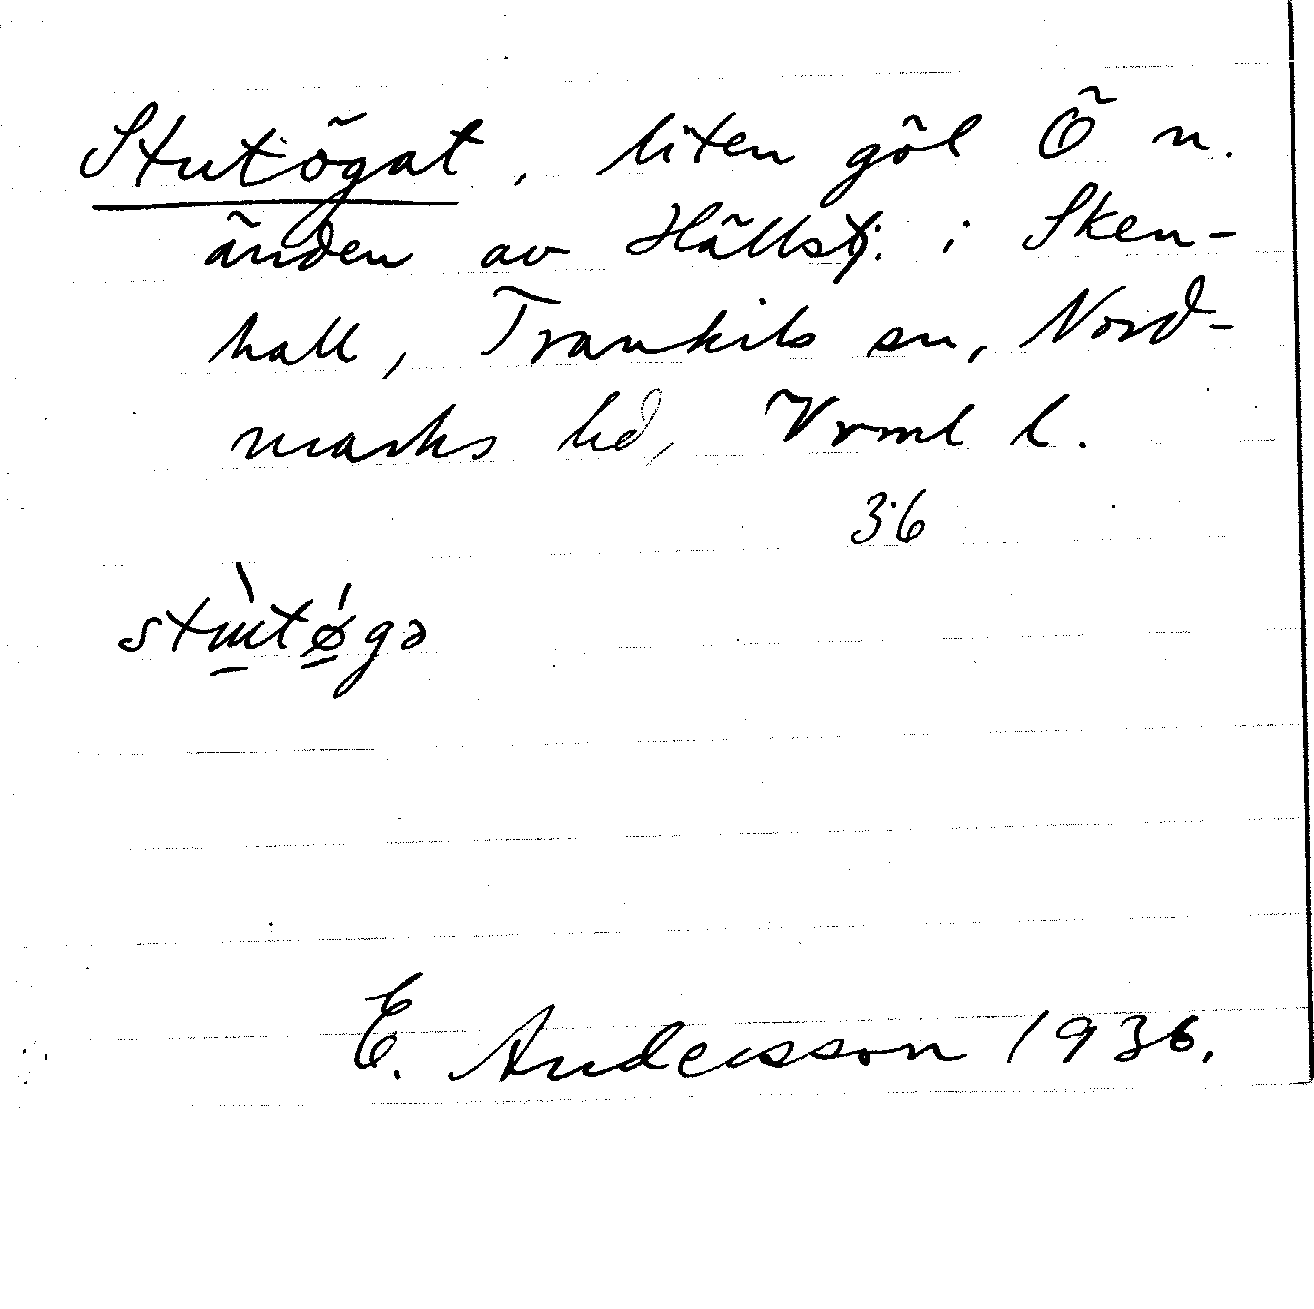 Stutögat, liten göl Ö n.
änden av Hällstj. i Sken-
hall, Trankils sn, Nord-
marks hd, Vrml l.
36
stɯ̲̀tǿ̲gə
E. Andersson 1936.